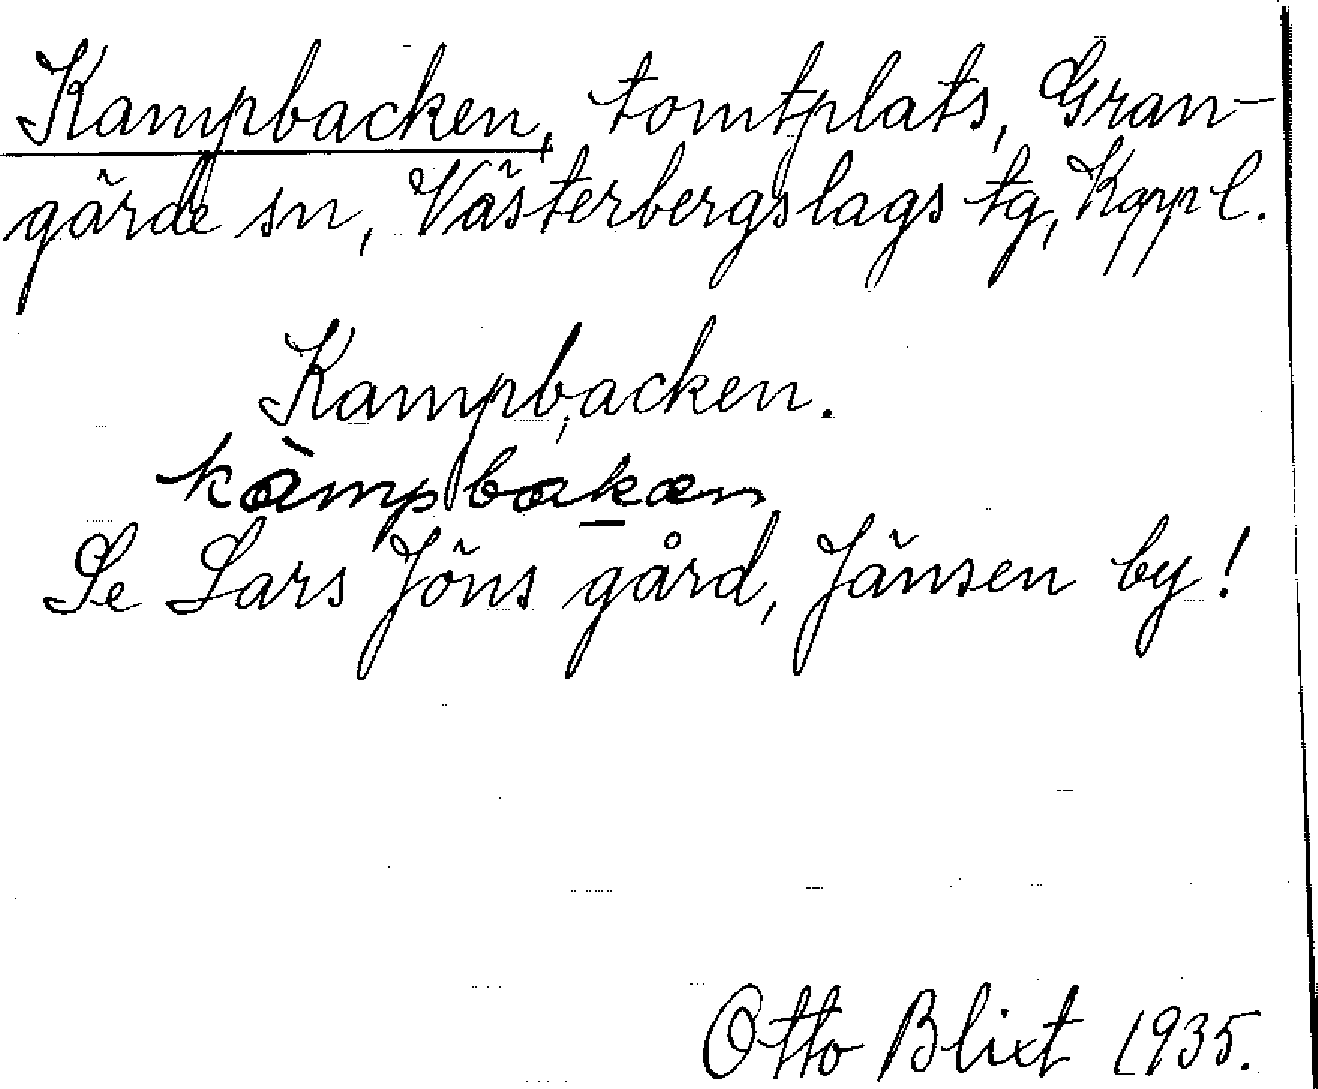 Kampbacken, tomtplats, Gran-
gärde sn, Västerbergslags tg, Kopp l.
Kampbacken.
kàmpbakæn
Se Lars Jöns gård, Jänsen by!
Otto Blixt 1935.